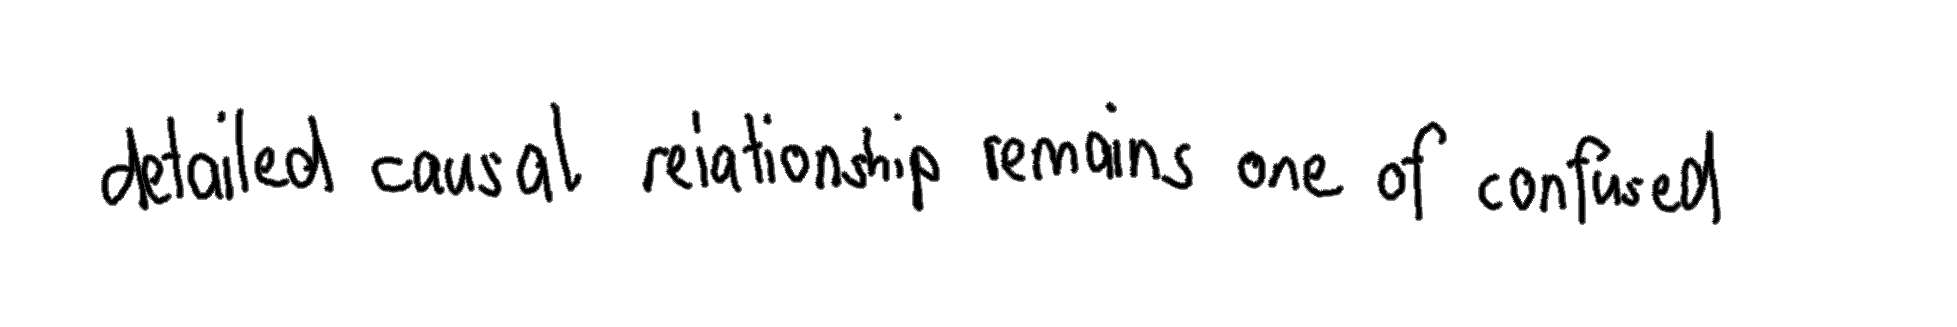 detailed causal relationship remains one of confused